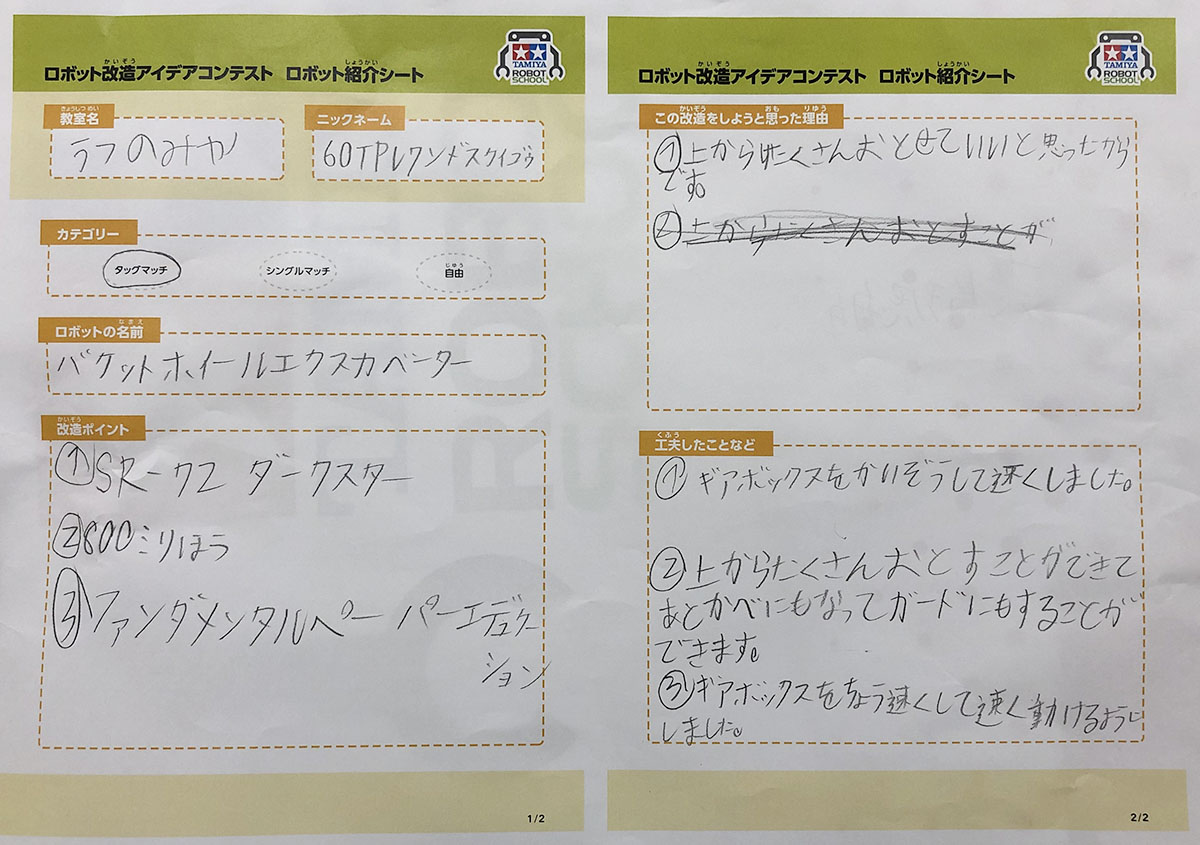 ロボット改造アイデアコンテスト ロボット紹介シート
かいぞう
しょうかい
TAMIYA
ROBOT
SCHOOL
きょうしつ めい
教室名
うつのみや
ニックネーム
カテゴリー
タッグマッチ
シングルマッチ
じゆう
自由
なまえ
ロボットの名前
バケットホイールエクスカベーター
かいぞう
改造ポイント
①SR-72 ダークスター
②800ミリほう
③ファンダメンタルペーパーエデュケー
ション
1/2
ロボット改造アイデアコンテスト ロボット紹介シート
かいぞう
しょうかい
TAMIYA
ROBOT
SCHOOL
かいぞう おも りゆう
この改造をしようと思った理由
①上から たくさんおとせていいと思ったから
です。
②上からたくさんおとすことが
くふう
工夫したことなど
①ギアボックスをかいぞうして速くしました。
②上からたくさんおとすことができて
あとかべにもなってガードにもすることが
できます。
③ギアボックスをちょう速くして速く動けるように
しました。
2/2